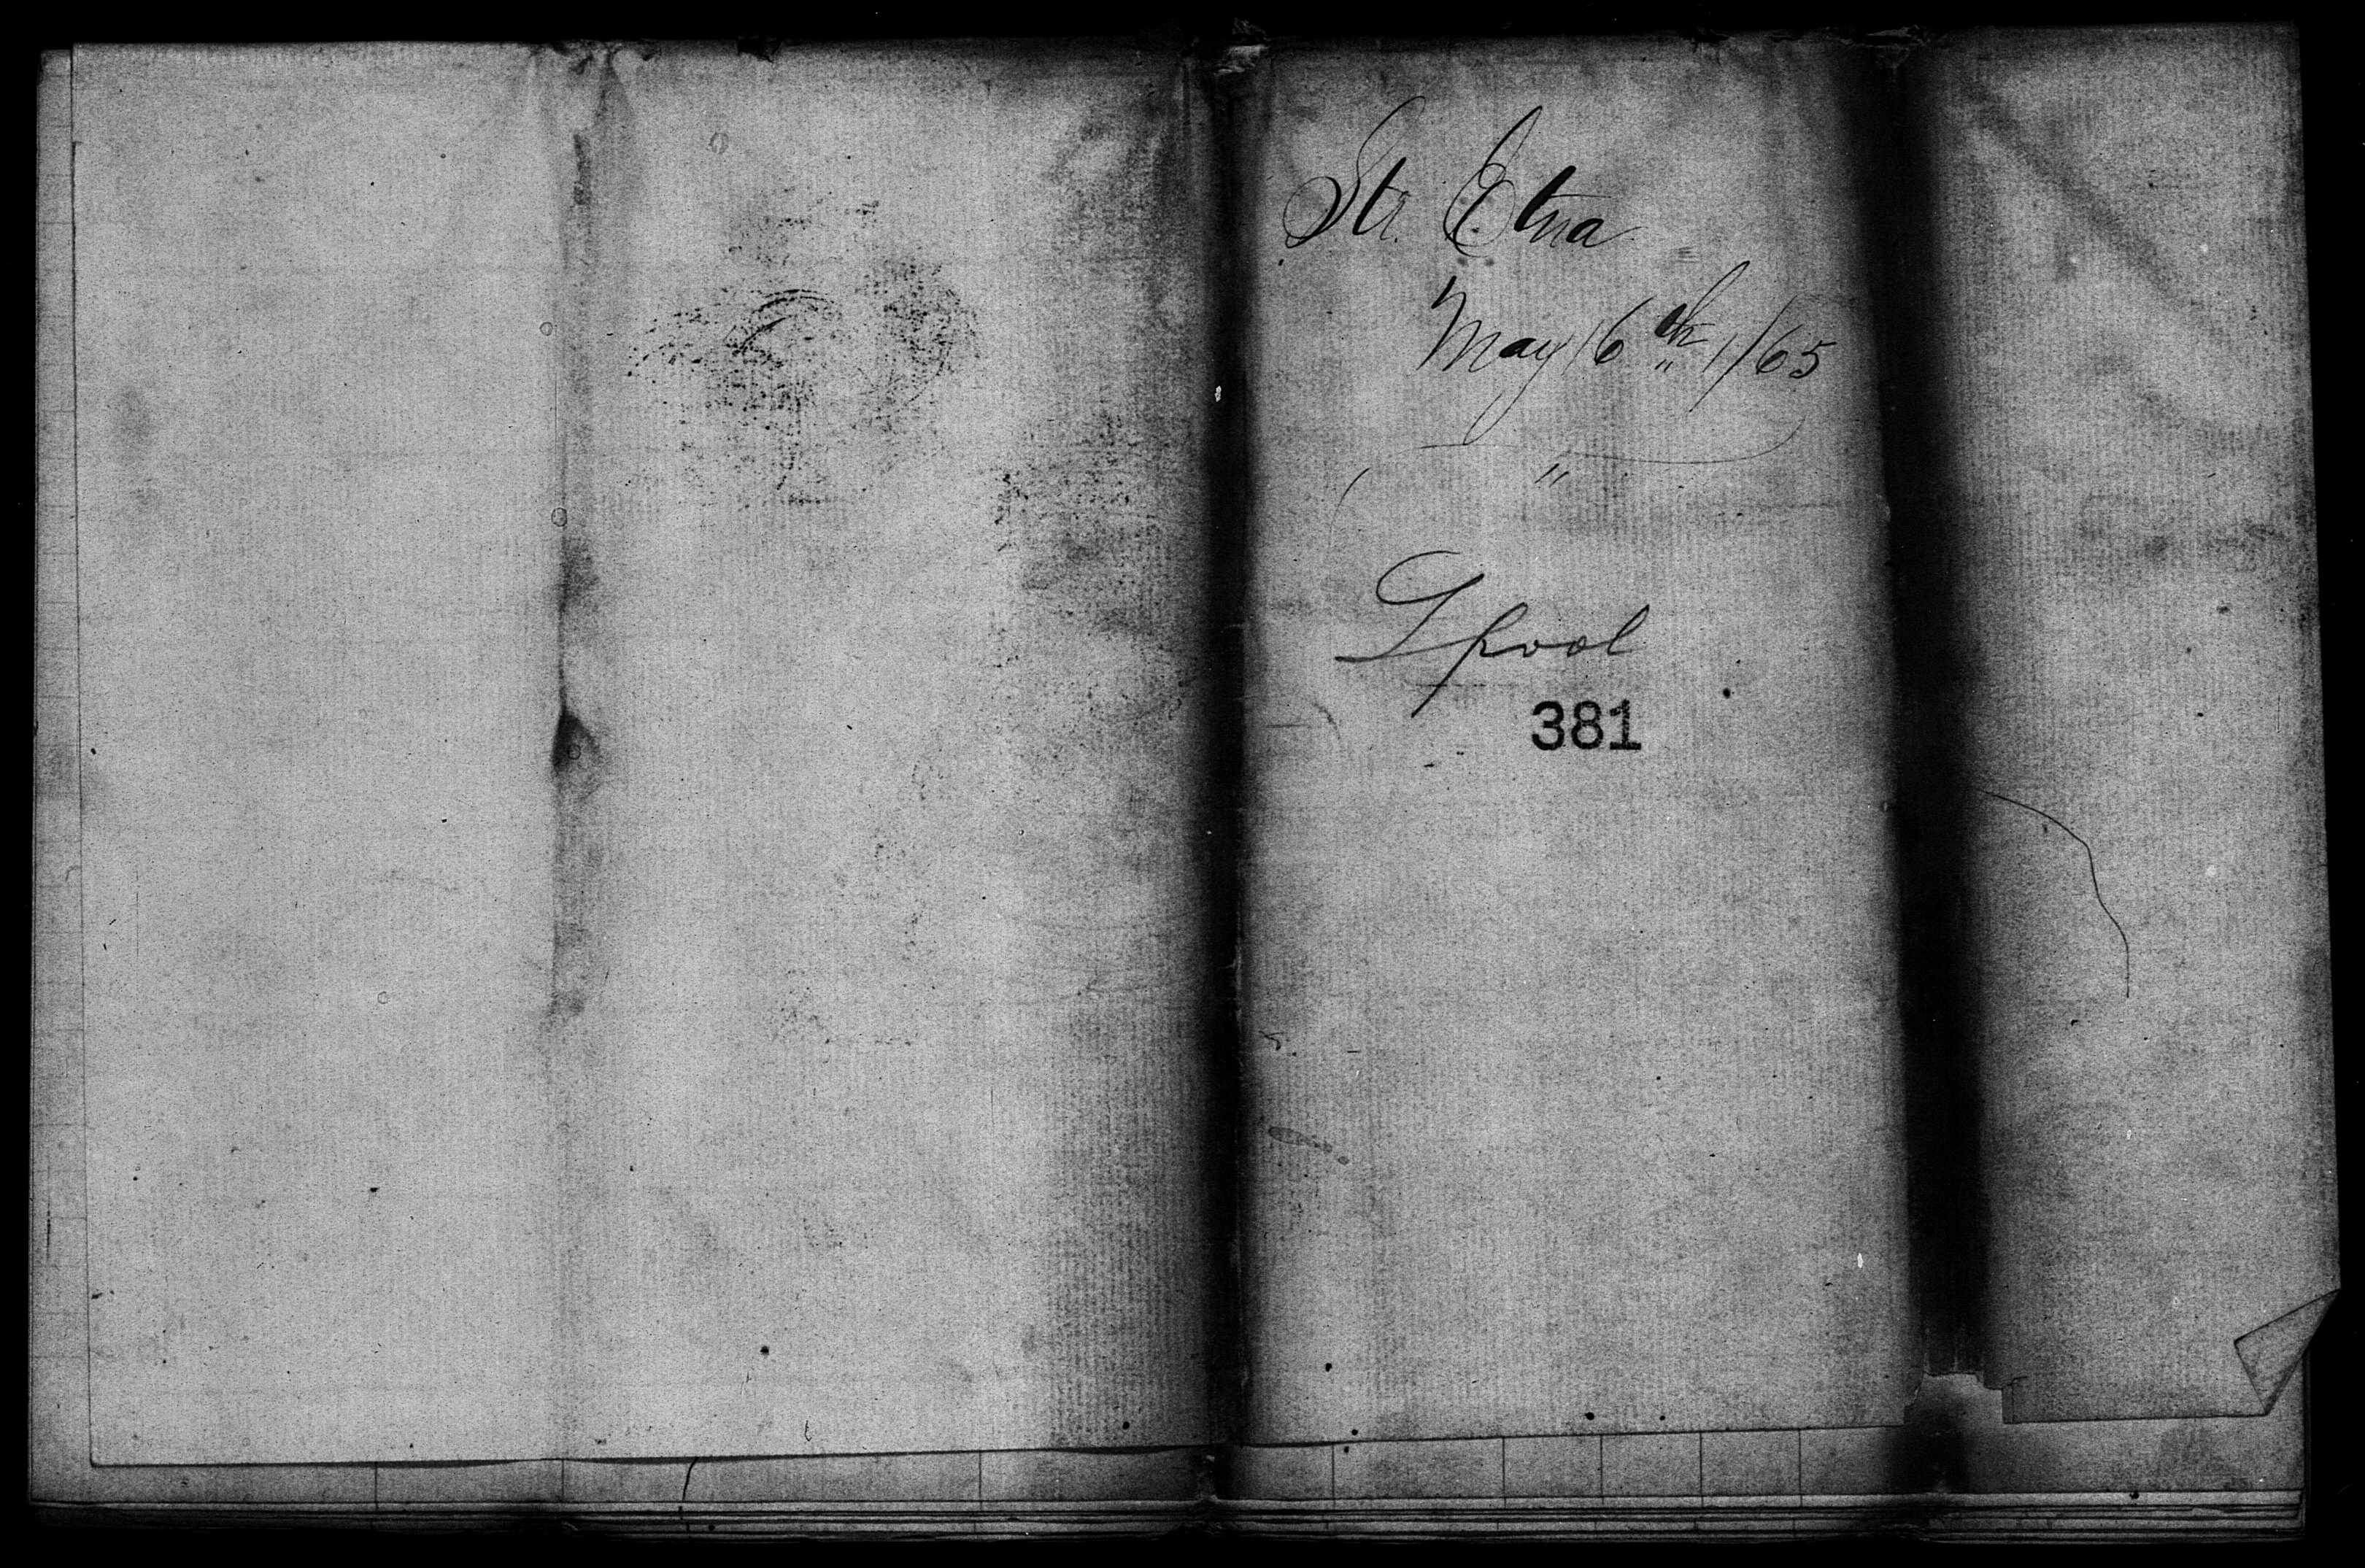 Str. Etna
May 16th 1/65
"
Lpool
381